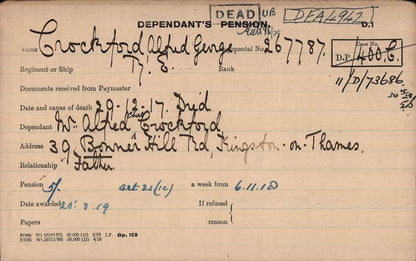 DEAD UB
DEA4942
DEPENDANT'S PENSION. D.1
Name Crockford Alfred George Regimental No. 267787.
Case No.
D.P. 400 C.
Regiment or Ship R. E. Rank
11/D/73686.
Documents received from Paymaster
Date and cause of death 29-12-17. Died
Dependant Mr Alfred Crockford
Address 39 Bonner Hill Rd, Kingston-on-Thames.
Relationship Father
Pension 5/- art 21 (1c) a week from 6.11.18
Date awarded 20.8.19 If refused
Papers reason
50,000 2/18 J.P. Gp. 169
50,000 4/18